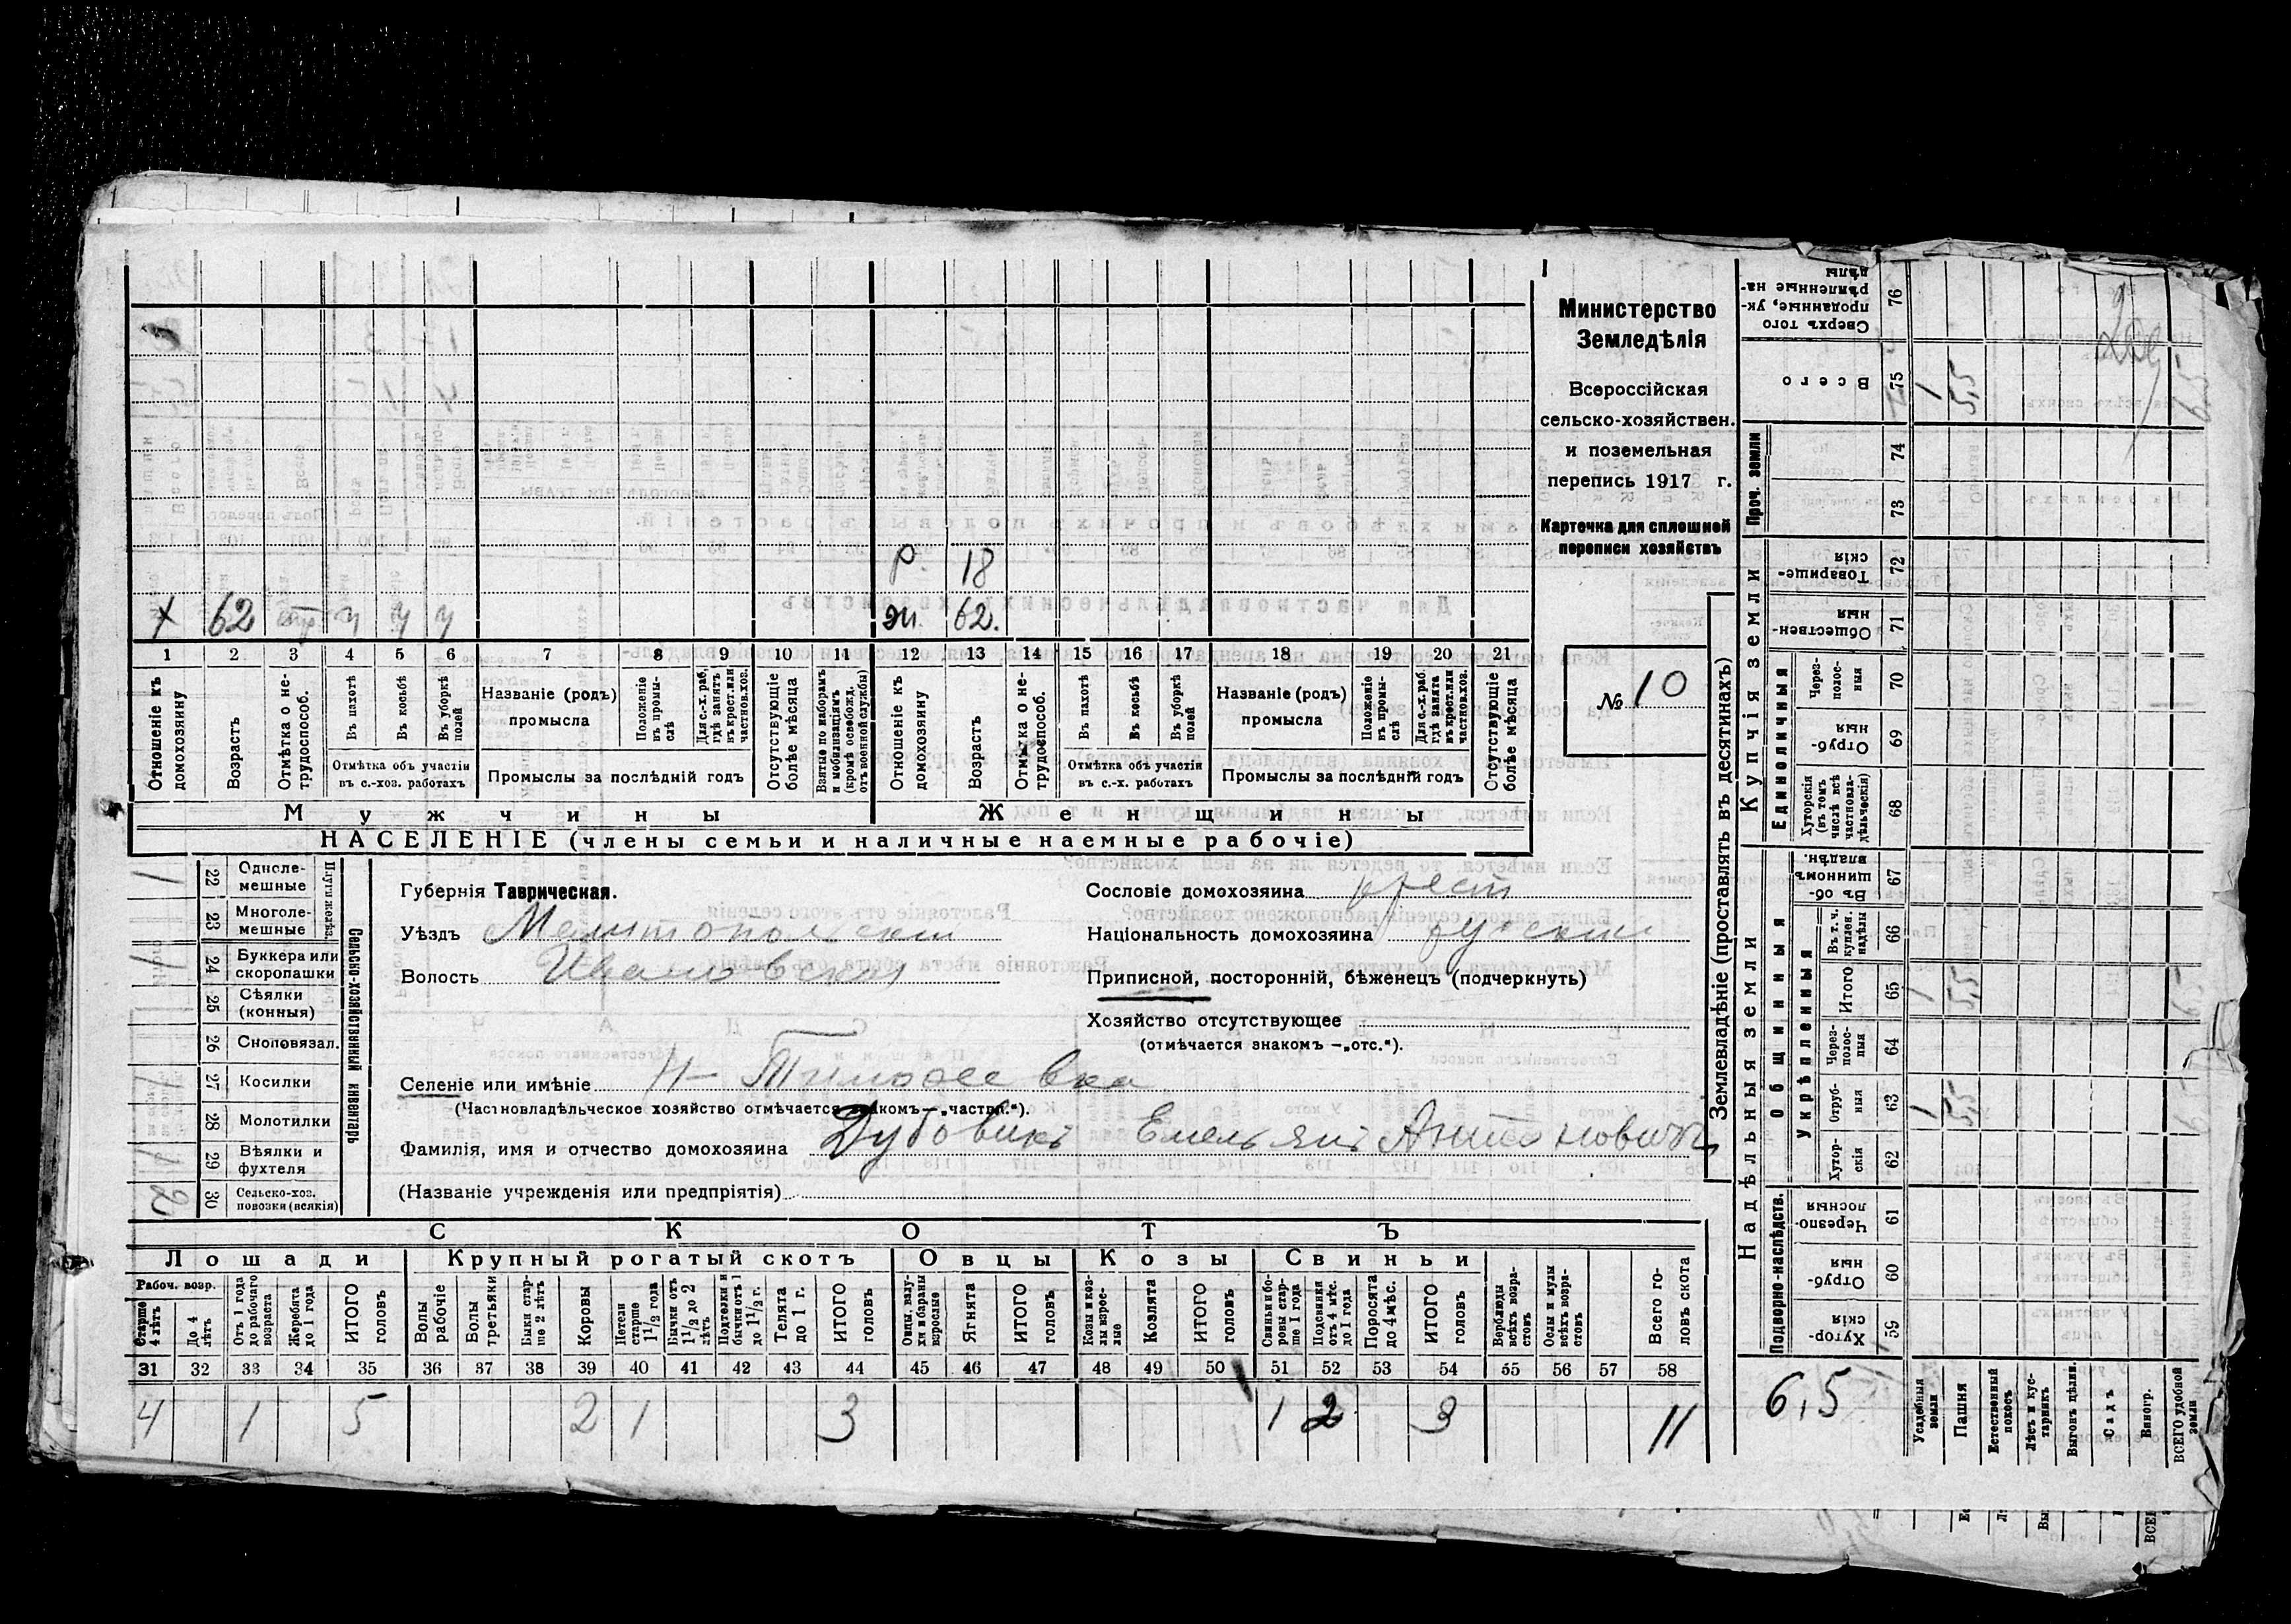 Министерство
Земледѣлія
Всероссійская
сельско-хозяйствен.
и поземельная
перепись 1917 г.
Карточка для сплошной
переписи хозяйствъ
№ 10
р. 18
х 62 ч ч ч жн. 62.
1 2 3 4 5 6 7 8 9 10 11 12 13 14 15 16 17 18 19 20 21
Отношеніе къ домохозяину
Возрастъ
Отмѣтка о нетрудоспособ.
Въ пахотѣ
Въ косьбѣ
Въ уборкѣ полей
Отмѣтка объ участіи
въ с.-хоз. работахъ
Названіе (родъ)
промысла
Положеніе въ промыслѣ
Для с.-х. раб. гдѣ занятъ въ крест. или частновл. хоз.
Промыслы за послѣдній годъ
Отсутствующіе болѣе мѣсяца
Взятые по наборамъ и мобилизаціямъ (кромѣ освобожд. отъ военной службы)
Отношеніе къ домохозяину
Возрастъ
Отмѣтка о нетрудоспособ.
Въ пахотѣ
Въ косьбѣ
Въ уборкѣ полей
Отмѣтка объ участіи
въ с.-х. работахъ
Названіе (родъ)
промысла
Положеніе въ промыслѣ
Для с.-х. раб. гдѣ занята въ крест. или частновл. хоз.
Промыслы за послѣдній годъ
Отсутствующіе болѣе мѣсяца
Мужчины Женщины
НАСЕЛЕНІЕ (члены семьи и наличные наемные рабочіе)
1 22 Однолемешные
23 Многолемешные
Плуги желѣз.
1 24 Буккера или скоропашки
25 Сѣялки (конныя)
26 Сноповязал.
27 Косилки
28 Молотилки
1 29 Вѣялки и фухтеля
2 30 Сельско-хоз. повозки (всякія)
Сельско-хозяйственный инвентарь
Губернія Таврическая.
Уѣздъ Мелитопольскій
Волость Ивановская
Сословіе домохозяина крест
Національность домохозяина русскій
Приписной, посторонній, бѣженецъ (подчеркнуть)
Хозяйство отсутствующее
(отмѣчается знакомъ —„отс.“).
Селеніе или имѣніе Н-Тимофеевка
(Частновладѣльческое хозяйство отмѣчается знакомъ—„частвл.“).
Фамилія, имя и отчество домохозяина Дубовикъ Емельянъ Антоновичъ
(Названіе учрежденія или предпріятія)
СКОТЪ
Лошади Крупный рогатый скотъ Овцы Козы Свиньи
Рабоч. возр.
Старше 4 лѣтъ
До 4 лѣтъ
Отъ 1 года до рабочаго возраста
Жеребята до 1 года
ИТОГО головъ
Волы рабочіе
Волы третьяки
Быки старше 2 лѣтъ
Коровы
Нетели старше 1½ года
Бычки отъ 1½ до 2 лѣтъ
Подтелки и бычки отъ 1 до 1½ г.
Телята до 1 г.
ИТОГО головъ
Овцы, валухи и бараны взрослые
Ягнята
ИТОГО головъ
Козы и козлы взрослые
Козлята
ИТОГО головъ
Свиньи и боровы старше 1 года
Подсвинки отъ 4 мѣс. до 1 года
Поросята до 4 мѣс.
ИТОГО головъ
Верблюды всѣхъ возрастовъ
Ослы и мулы всѣхъ возрастовъ
Всего головъ скота
31 32 33 34 35 36 37 38 39 40 41 42 43 44 45 46 47 48 49 50 51 52 53 54 55 56 57 58
4 1 5 2 1 3 1 2 3 11
Землевладѣніе (проставлять въ десятинахъ)
Надѣльныя земли Купчія земли Проч. земли
Подворно-наслѣдств.
Общинныя
Укрѣпленныя
Единоличныя
Хуторскія 59
Отрубныя 60
Черезполосныя 61
Хуторскія 62
Отрубныя 63 1 5,5
Черезполосныя 64
Итого 65 1 5,5
Въ т. ч. куплен. надѣлы 66
Въ общинномъ владѣн. 67
Хуторскія (въ томъ числѣ всѣ частновладѣльческія) 68
Отрубныя 69
Черезполосныя 70
Общественныя 71
Товарищескія 72
73
74
Всего 75 1 5,5
Сверхъ того проданные, укрѣпленные надѣлы 76
6,5
Усадебныя земли
Пашня
Естественный покосъ
Лѣсъ и кустарникъ
Выгонъ цѣлин.
Садъ
Виногр.
ВСЕГО удобной земли